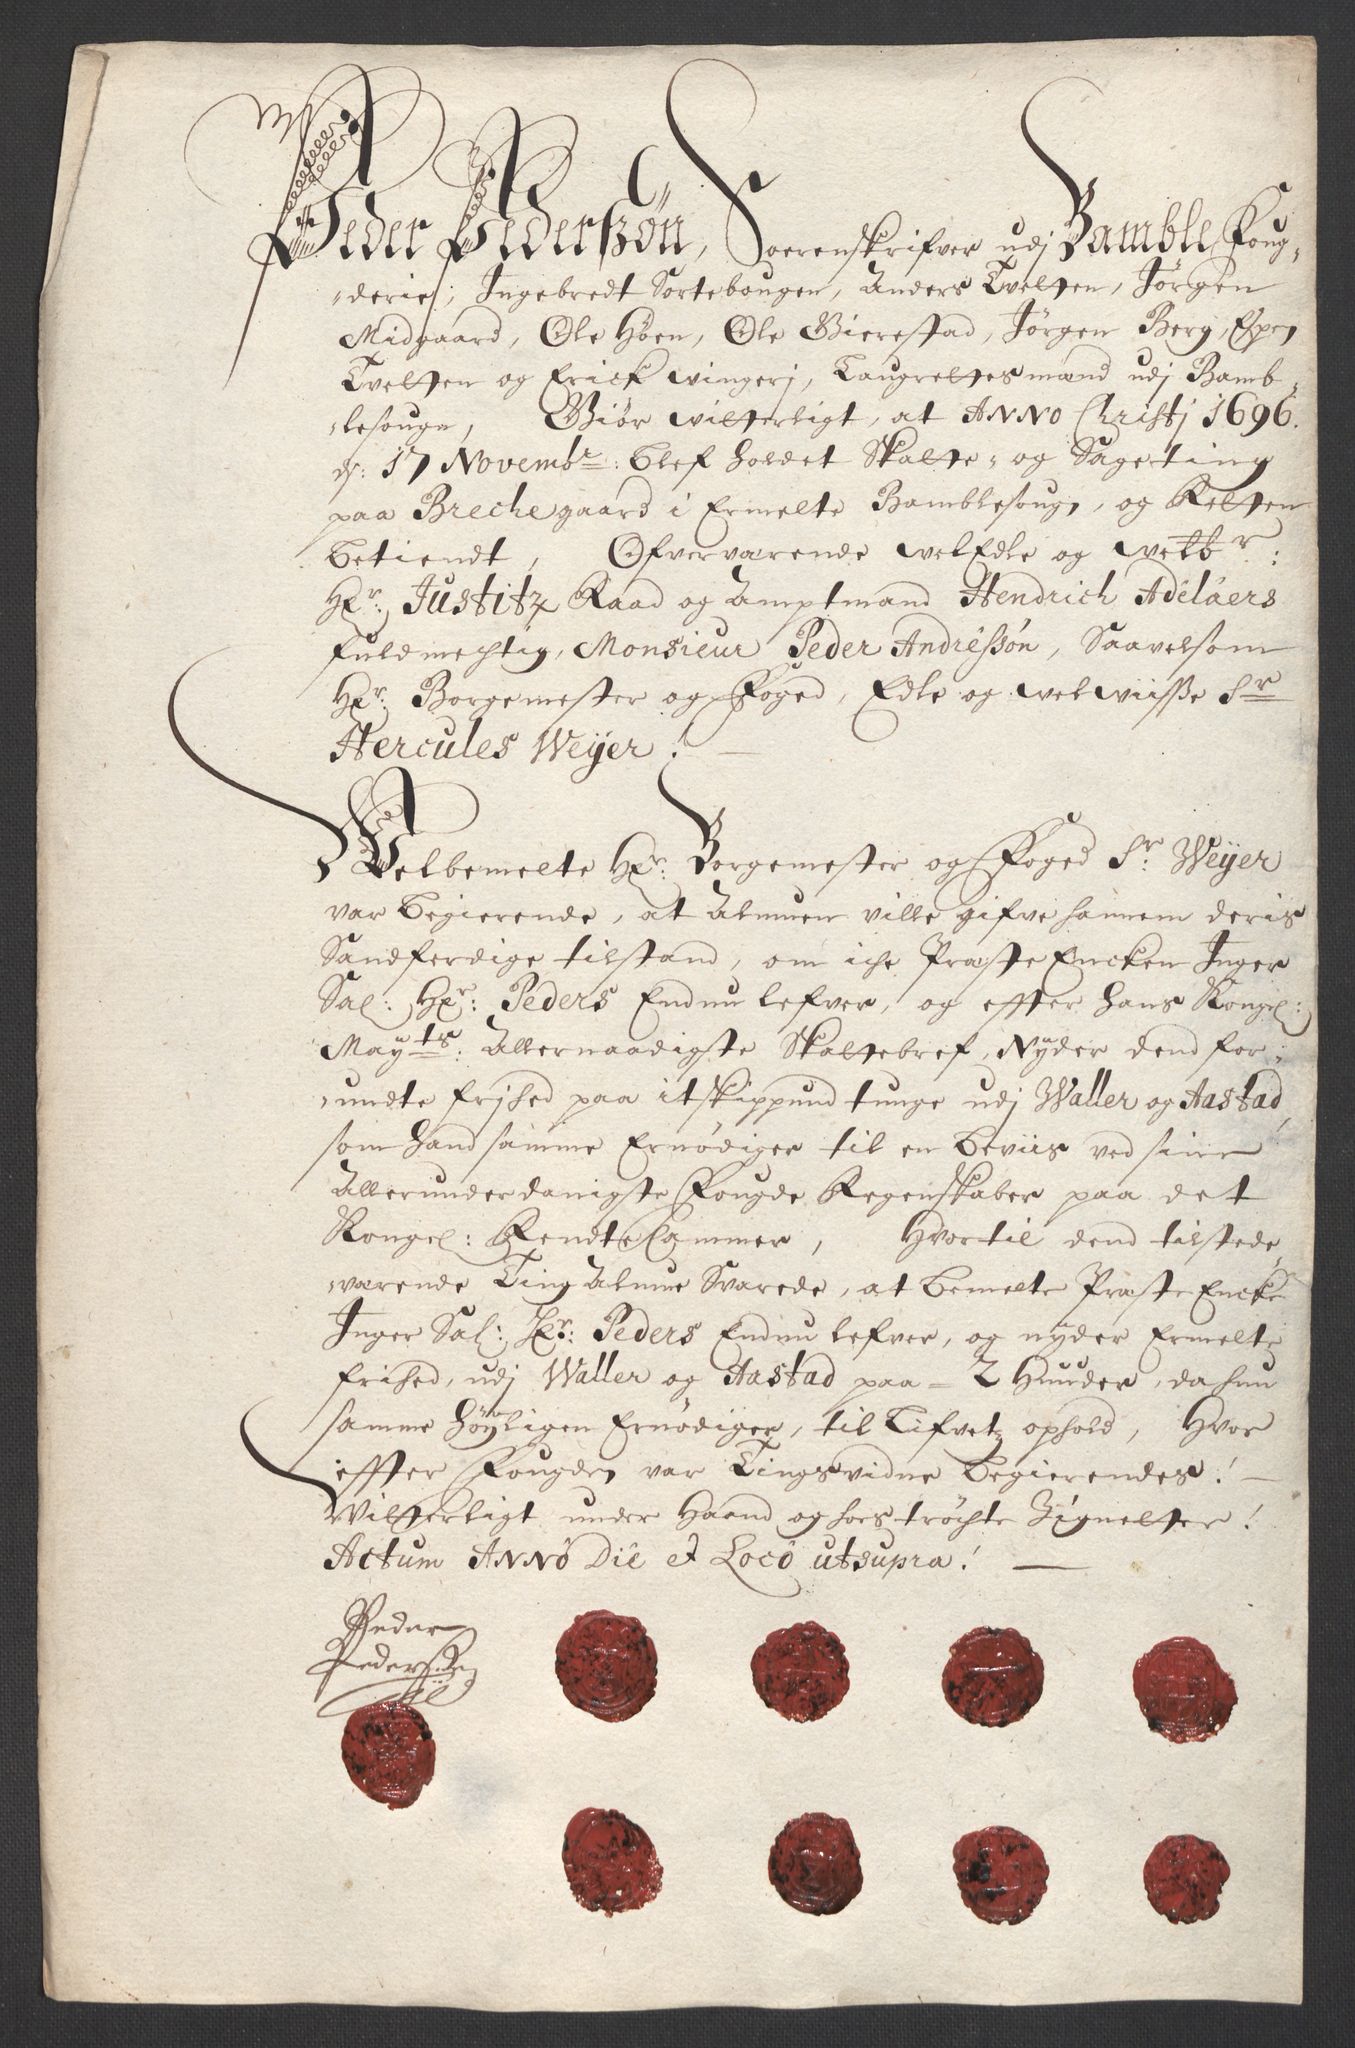 Peder Pederßøn, Soerenskrifver udj Bamble Foug-
derie, Ingebredt Sortebougen, Anders Tvetten, Jørgen
Midgaard, Ole Høen, Ole Bierestad, Jørgen Berg, Espen
Tvetten og Erick Vingerj, Laugrettesmænd udj Bamb-
lesougn, Giør witterligt, at Anno Christj 1696.
d: 17 Novembr: blef holdet Skatte- og Sageting
paa Brechegaard i Ermelte Bamblesougn, og Retten
betiendt, Ofverværende welEdle og welbr:
Hr: Justitz Raad og Amptmand Hendrich Adelaers
fuldmechtig, Monsieur Peder Andreßøn, Saavelsom
Hr: Borgemester og Foged, Edle og welwiisse Sr
Hercules Weyer!
Velbemelte Hr: Borgemester og Foged Sr: Weyer
var begierende, at Almuen ville gifve hannem deris
Sandferdige tilstand, om iche Præste Encken Inger
Sal: Hr: Peders Endnu lefver, og effter Hans Kongl:
Mayts: Allernaadigste Skattebref, Nyder dend for-
undte frihed paa it skippund tunge udj Waller og Aastad,
som hand samme Ernødiger til en beviis ved sine
Allerunderdanigste Fougde Regenskaber paa det
Kongel: RendteCammer, Hvortil dend tilstede
værende Ting Almue Svarede, at bemelte Præste Encke
Inger Sal: Hr: Peders Endnu lefver, og nyder Ermelte
frihed, udj Waller og Aastad paa - 2 Huuder, da hun
samme høyligen Ernødiger, til Lifvetz ophold, Hvor
effter Fougden var Tingsvidne begierendes!
Vitterligt under Haand og hoes trøchte Zignetter!
Actum Anno Die et Loco utsupra!
Peder
Pedersen